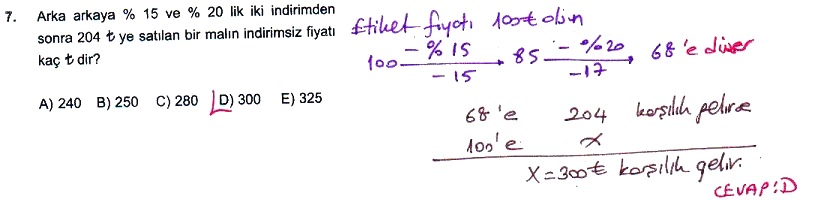 7. Arka arkaya % 15 ve % 20 lik iki indirimden
sonra 204 ₺ ye satılan bir malın indirimsiz fiyatı
kaç ₺ dir?
A) 240 B) 250 C) 280 D) 300 E) 325
Etiket fiyatı 100₺ olsun
100 - % 15 - 15 85 - % 20 - 17 68 'e düşer
68 'e 204 karşılık gelirse
100'e x
X = 300₺ karşılık gelir.
CEVAP: D